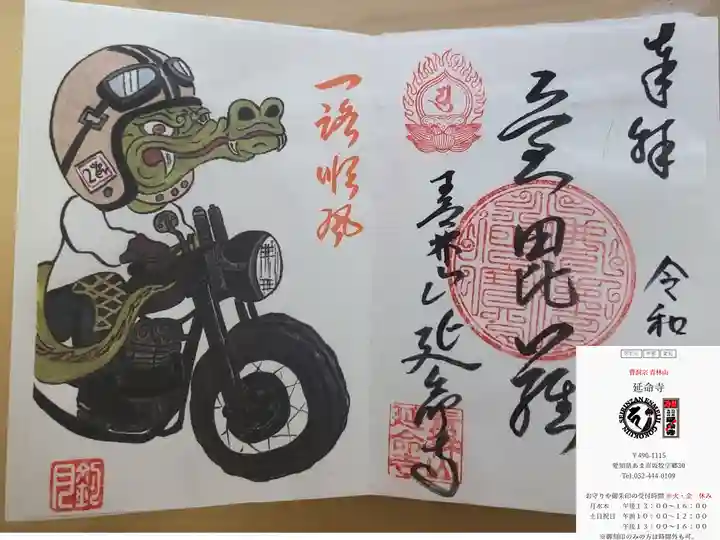 奉拝
宮毘羅
令和
青林山
延命寺
一路順風
曹洞宗 青林山
延命寺
SEIRINZAN ENMEIJI
〒490-1115
愛知県あま市坂牧字郷30
Tel.052-444-0109
お守りや御朱印の受付時間 ※火・金 休み
月水木 午後13:00~16:00
土日祝日 午前10:00~12:00
午後13:00~16:00
※御朱印のみの方は時間外も可。